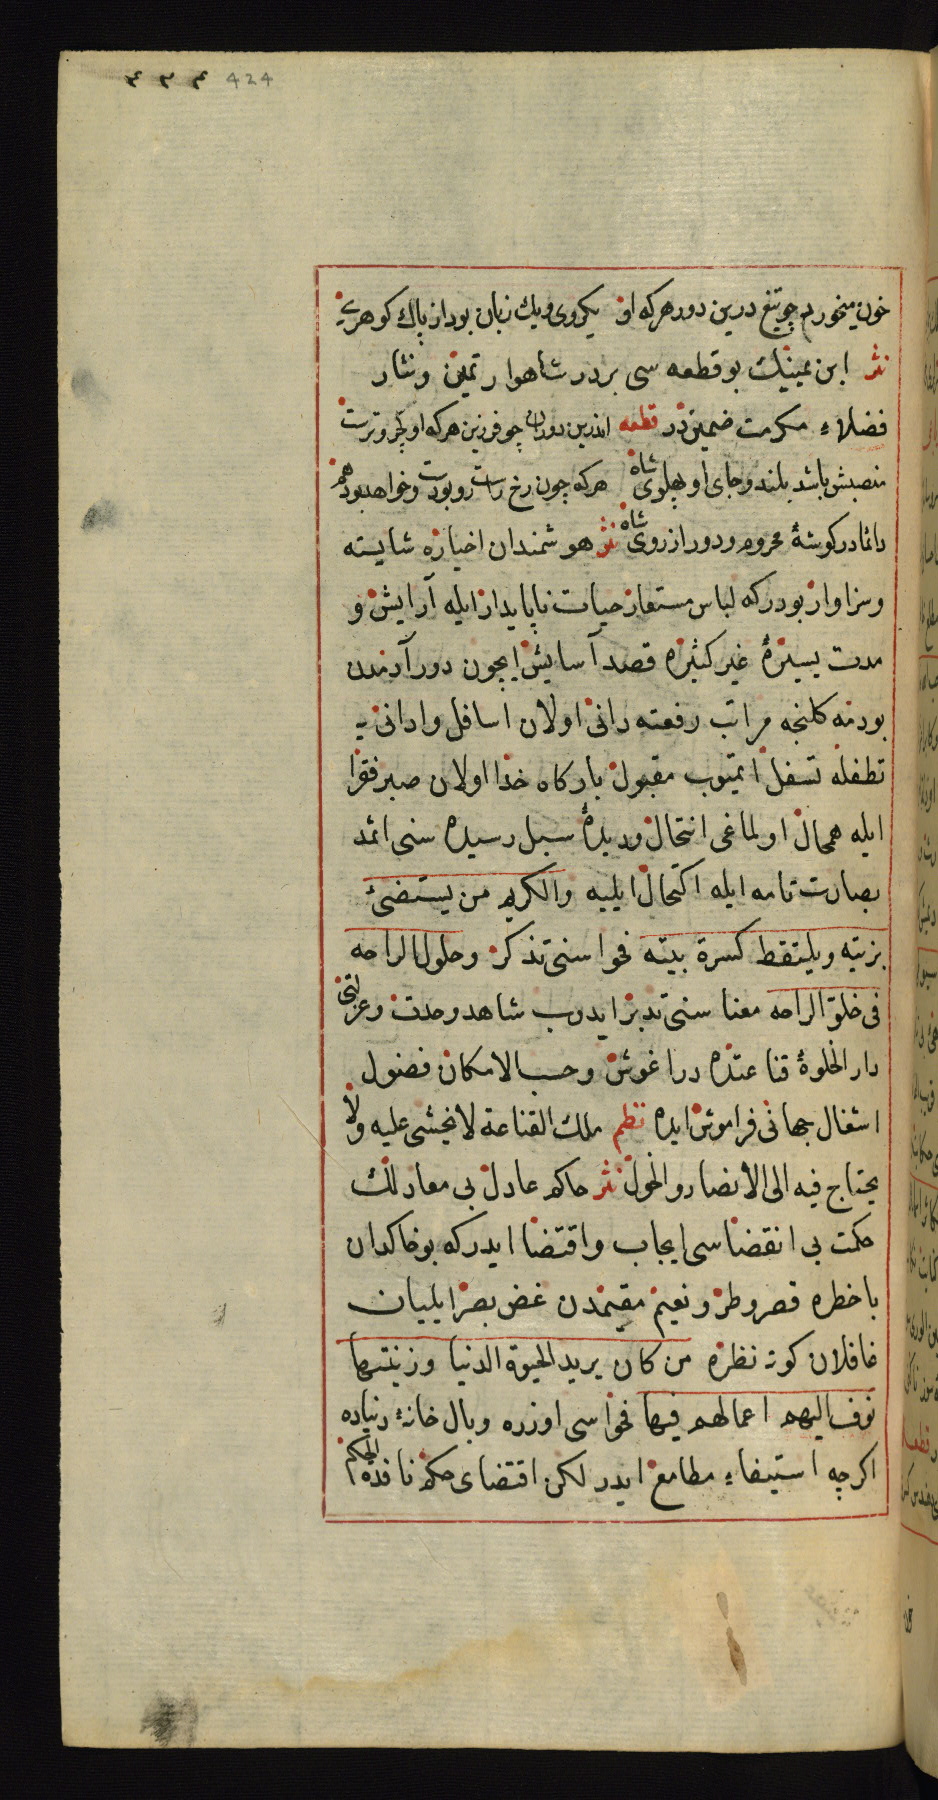 ۴۳۴ 424
خون میخوردم چو تیغ درین دور هرکه او یکروی ویك زبان بود از پاك کوهری
نثر ابن یمینك بو قطعه سی بر در شاهوار ثمین ونثار
فضلاء مکرمت ضمیندر قطعه اندرین دوران چو فرزین هرکه او کجروترست
منصبش باشد بلند وجای او پهلوی شاه هرکه چون رخ راست رو بودست وخواهد بود هم
دائما در کوشهٔ محروم ودور از روی شاه نثر هوشمندان اخیاره شایسته
وسزاوار بودرکه لباس مستعار حیات ناپایدار ایله آرایش و
مدت یسیرهٔ غیر کثیره قصد آسایش ایچون دور آدمدن
بو دمه کلنجه مراتب رفعته دانی اولان اسافل وادانی یه
تطفله تسفل ایتمیوب مقبول بارکاه خدا اولان صبر فقرا
ایله همحال اولماغی انتحال ودیدهٔ سبل رسیده سنی اثمد
بصارت تامه ایله اکتحال ایلیه والکریم من یستضئ
بزیته ویلتقط کسرة بیته فحواسنی تذکر وحلول الراحه
فی خلق الراحه معناسنی تدبر ایدرب شاهد وحدت وعزلتی
دار الخلوهٔ قناعتده دراغوش وحسب الامکان فضول
اشغال جهانی فراموش ایده نظم ملك القناعة لا یخشی علیه ولا
یحتاج فیه الی الانصار والخول نثر حاکم عادل بی معادلك
حکمت بی انقضاسی ایجاب واقتضا ایدرکه بو خاکدان
باخطره قصر وطر ونعیم مقیمدن غض بصر ایلیان
غافلان کوته نظره من کان یرید الحیوة الدنیا وزینتها
نوف الیهم اعمالهم فیها فحواسی اوزره وبال خانهٔ دنیاده
اکرچه استیفاء مطامع ایدر لکن اقتضای حکم نافذة الحکم